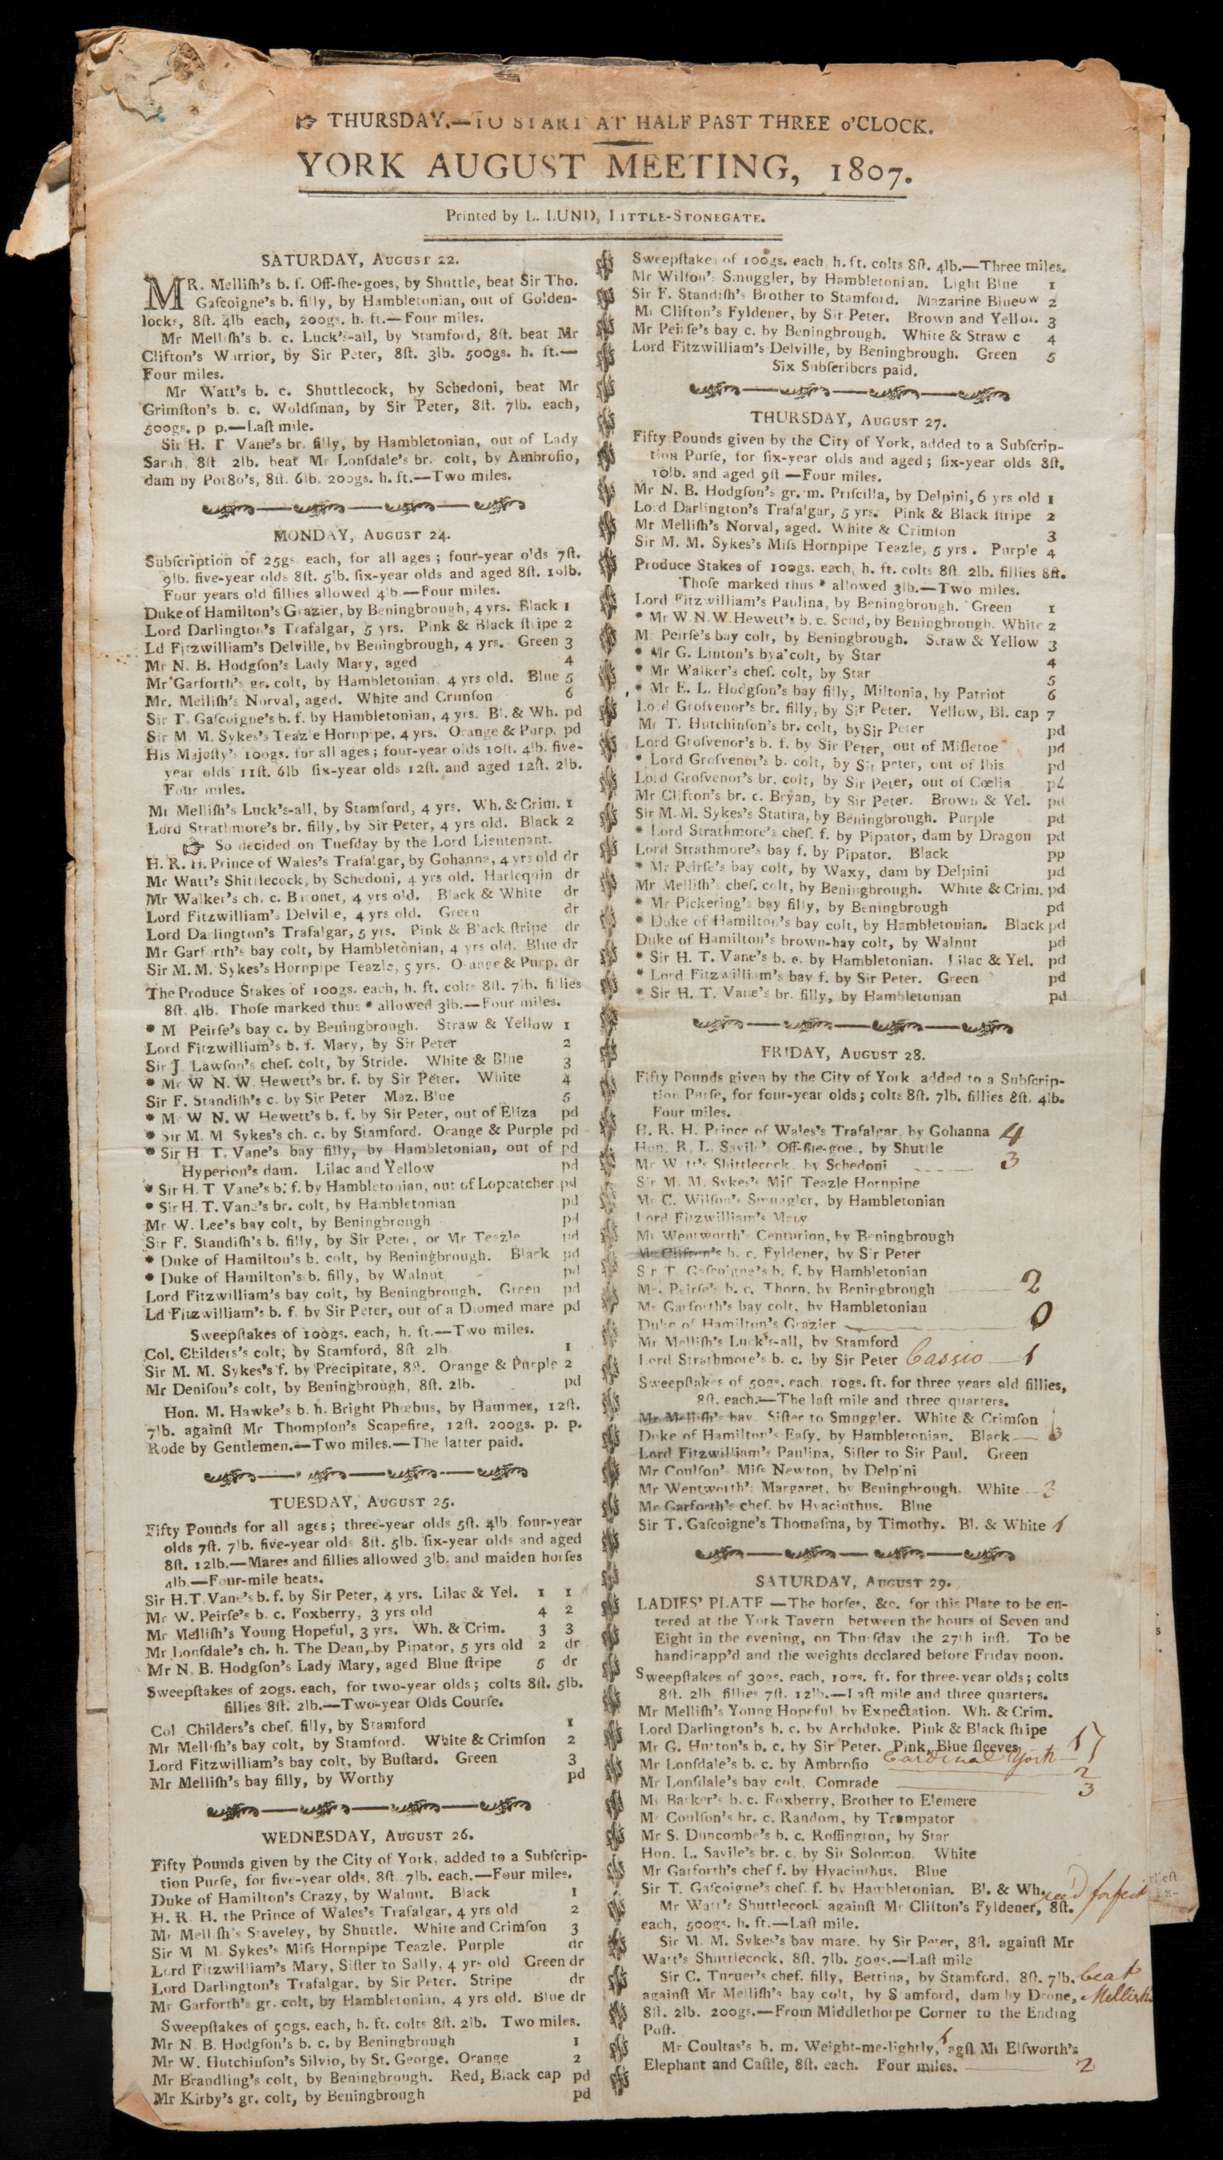 ☞ THURSDAY.—TO START AT HALF PAST THREE o'CLOCK.
YORK AUGUST MEETING, 1807.
Printed by L. LUND, LITTLE-STONEGATE.
SATURDAY, AUGUST 22.
MR. Melliſh's b. f. Off-ſhe-goes, by Shuttle, beat Sir Tho.
Gaſcoigne's b. filly, by Hambletonian, out of Golden-
locks, 8ſt. 4lb each, 200gs. h. ft.—Four miles.
Mr Melliſh's b. c. Luck's-all, by Stamford, 8ſt. beat Mr
Clifton's Warrior, by Sir Peter, 8ſt. 3lb. 500gs. h. ft.—
Four miles.
Mr Watt's b. c. Shuttlecock, by Schedoni, beat Mr
Grimſton's b. c. Woldſman, by Sir Peter, 8ſt. 7lb. each,
500gs. p p.—Laſt mile.
Sir H. T Vane's br. filly, by Hambletonian, out of Lady
Sarah, 8ſt 2lb. beat Mr Lonſdale's br. colt, by Ambroſio,
dam by Pot8o's, 8ſt. 6lb. 200gs. h. ft.—Two miles.
MONDAY, AUGUST 24.
Subſcription of 25gs each, for all ages; four-year olds 7ſt.
9lb. five-year olds 8ſt. 5lb. ſix-year olds and aged 8ſt. 10lb.
Four years old fillies allowed 4lb.—Four miles.
Duke of Hamilton's Grazier, by Beningbrough, 4 yrs. Black 1
Lord Darlington's Trafalgar, 5 yrs. Pink & Black ſtripe 2
Ld Fitzwilliam's Delville, by Beningbrough, 4 yrs. Green 3
Mr N. B. Hodgſon's Lady Mary, aged 4
Mr Garforth's gr. colt, by Hambletonian 4 yrs old. Blue 5
Mr. Melliſh's Norval, aged. White and Crimſon 6
Sir T. Gaſcoigne's b. f. by Hambletonian, 4 yrs. Bl. & Wh. pd
Sir M M. Sykes's Teazle Hornpipe, 4 yrs. Orange & Purp. pd
His Majeſty's 100gs. for all ages; four-year olds 10ſt. 4lb. five-
year olds 11ſt. 6lb ſix-year olds 12ſt. and aged 12ſt. 2lb.
Four miles.
Mr Melliſh's Luck's-all, by Stamford, 4 yrs. Wh. & Crim. 1
Lord Strathmore's br. filly, by Sir Peter, 4 yrs old. Black 2
☞ So decided on Tueſday by the Lord Lieutenant.
H. R. H. Prince of Wales's Trafalgar, by Gohanna, 4 yrs old dr
Mr Watt's Shittlecock, by Schedoni, 4 yrs old. Harlequin dr
Mr Walker's ch. c. Bronet, 4 yrs old. Black & White dr
Lord Fitzwilliam's Delville, 4 yrs old. Green dr
Lord Darlington's Trafalgar, 5 yrs. Pink & Black ſtripe dr
Mr Garforth's bay colt, by Hambletonian, 4 yrs old. Blue dr
Sir M. M. Sykes's Hornpipe Teazle, 5 yrs. Orange & Purp. dr
The Produce Stakes of 100gs. each, h. ft. colts 8ſt. 7lb. fillies
8ſt. 4lb. Thoſe marked thus * allowed 3lb.—Four miles.
* M Peirſe's bay c. by Beningbrough. Straw & Yellow 1
Lord Fitzwilliam's b. f. Mary, by Sir Peter 2
Sir J Lawſon's cheſ. colt, by Stride. White & Blue 3
* Mr W N. W. Hewett's br. f. by Sir Peter. White 4
Sir F. Standiſh's c. by Sir Peter Maz. Blue 5
* M W N. W Hewett's b. f. by Sir Peter, out of Eliza pd
* Sir M. M Sykes's ch. c. by Stamford. Orange & Purple pd
* Sir H T. Vane's bay filly, by Hambletonian, out of pd
Hyperion's dam. Lilac and Yellow pd
* Sir H. T Vane's b. f. by Hambletonian, out of Lopcatcher pd
* Sir H. T. Vane's br. colt, by Hambletonian pd
Mr W. Lee's bay colt, by Beningbrough pd
Sir F. Standiſh's b. filly, by Sir Peter, or Mr Teazle pd
* Duke of Hamilton's b. colt, by Beningbrough. Black pd
* Duke of Hamilton's b. filly, by Walnut pd
Lord Fitzwilliam's bay colt, by Beningbrough. Green pd
Ld Fitzwilliam's b. f. by Sir Peter, out of a Diomed mare pd
Sweepſtakes of 100gs. each, h. ft.—Two miles.
Col. Childers's colt, by Stamford, 8ſt 2lb 1
Sir M. M. Sykes's f. by Precipitate, 8ſt. Orange & Purple 2
Mr Deniſon's colt, by Beningbrough, 8ſt. 2lb. pd
Hon. M. Hawke's b. h. Bright Phœbus, by Hammer, 12ſt.
7lb. againſt Mr Thompſon's Scapefire, 12ſt. 200gs. p. p.
Rode by Gentlemen.—Two miles.—The latter paid.
TUESDAY, AUGUST 25.
Fifty Pounds for all ages; three-year olds 5ſt. 4lb four-year
olds 7ſt. 7lb. five-year olds 8ſt. 5lb. ſix-year olds and aged
8ſt. 12lb.—Mares and fillies allowed 3lb. and maiden horſes
4lb.—Four-mile heats.
Sir H.T Vane's b. f. by Sir Peter, 4 yrs. Lilac & Yel. 1 1
Mr W. Peirſe's b. c. Foxberry, 3 yrs old 4 2
Mr Melliſh's Young Hopeful, 3 yrs. Wh. & Crim. 3 3
Mr Lonſdale's ch. h. The Dean, by Pipator, 5 yrs old 2 dr
Mr N. B. Hodgſon's Lady Mary, aged Blue ſtripe 5 dr
Sweepſtakes of 20gs. each, for two-year olds; colts 8ſt. 5lb.
fillies 8ſt. 2lb.—Two-year Olds Courſe.
Col Childers's cheſ. filly, by Stamford 1
Mr Melliſh's bay colt, by Stamford. White & Crimſon 2
Lord Fitzwilliam's bay colt, by Buſtard. Green 3
Mr Melliſh's bay filly, by Worthy pd
WEDNESDAY, AUGUST 26.
Fifty Pounds given by the City of York, added to a Subſcrip-
tion Purſe, for five-year olds, 8ſt. 7lb. each.—Four miles.
Duke of Hamilton's Crazy, by Walnut. Black 1
H. R H. the Prince of Wales's Trafalgar, 4 yrs old 2
Mr Melliſh's Staveley, by Shuttle. White and Crimſon 3
Sir M M. Sykes's Miſs Hornpipe Teazle. Purple dr
Lord Fitzwilliam's Mary, Siſter to Sally, 4 yrs old Green dr
Lord Darlington's Trafalgar, by Sir Peter. Stripe dr
Mr Garforth's gr. colt, by Hambletonian, 4 yrs old. Blue dr
Sweepſtakes of 50gs. each, h. ft. colts 8ſt. 2lb. Two miles.
Mr N. B. Hodgſon's b. c. by Beningbrough 1
Mr W. Hutchinſon's Silvio, by St. George. Orange 2
Mr Brandling's colt, by Beningbrough. Red, Black cap pd
Mr Kirby's gr. colt, by Beningbrough pd
Sweepſtakes of 100gs. each, h. ft. colts 8ſt. 4lb.—Three miles.
Mr Wilſon's Smuggler, by Hambletonian. Light Blue 1
Sir F. Standiſh's Brother to Stamford. Mazarine Blue 2
Mr Clifton's Fyldener, by Sir Peter. Brown and Yellow 3
Mr Peirſe's bay c. by Beningbrough. White & Straw c 4
Lord Fitzwilliam's Delville, by Beningbrough. Green 5
Six Subſcribers paid.
THURSDAY, AUGUST 27.
Fifty Pounds given by the City of York, added to a Subſcrip-
tion Purſe, for ſix-year olds and aged; ſix-year olds 8ſt.
10lb. and aged 9ſt —Four miles.
Mr N. B. Hodgſon's gr. m. Priſcilla, by Delpini, 6 yrs old 1
Lord Darlington's Trafalgar, 5 yrs. Pink & Black ſtripe 2
Mr Melliſh's Norval, aged. White & Crimſon 3
Sir M. M. Sykes's Miſs Hornpipe Teazle, 5 yrs. Purple 4
Produce Stakes of 100gs. each, h. ft. colts 8ſt. 2lb. fillies 8ſt.
Thoſe marked thus * allowed 3lb.—Two miles.
Lord Fitzwilliam's Paulina, by Beningbrough. Green 1
* Mr W.N.W.Hewett's b. c. Scud, by Beningbrough. White 2
Mr Peirſe's bay colt, by Beningbrough. Straw & Yellow 3
* Mr G. Linton's bya colt, by Star 4
* Mr Walker's cheſ. colt, by Star 5
* Mr E. L. Hodgſon's bay filly, Miltonia, by Patriot 6
Lord Groſvenor's br. filly, by Sir Peter. Yellow, Bl. cap 7
Mr T. Hutchinſon's br. colt, by Sir Peter pd
Lord Groſvenor's b. f. by Sir Peter, out of Miſletoe pd
* Lord Groſvenor's b. colt, by Sir Peter, out of Ibis pd
Lord Groſvenor's br. colt, by Sir Peter, out of Cœlia pd
Mr Clifton's br. c. Bryan, by Sir Peter. Brown & Yel. pd
Sir M.M. Sykes's Statira, by Beningbrough. Purple pd
* Lord Strathmore's cheſ. f. by Pipator, dam by Dragon pd
Lord Strathmore's bay f. by Pipator. Black pp
* Mr Peirſe's bay colt, by Waxy, dam by Delpini pd
Mr Melliſh's cheſ. colt, by Beningbrough. White & Crim. pd
* Mr Pickering's bay filly, by Beningbrough pd
* Duke of Hamilton's bay colt, by Hambletonian. Black pd
Duke of Hamilton's brown-bay colt, by Walnut pd
* Sir H. T. Vane's b. c. by Hambletonian. Lilac & Yel. pd
* Lord Fitzwilliam's bay f. by Sir Peter. Green pd
* Sir H. T. Vane's br. filly, by Hambletonian pd
FRIDAY, AUGUST 28.
Fifty Pounds given by the City of York added to a Subſcrip-
tion Purſe, for four-year olds; colts 8ſt. 7lb. fillies 8ſt. 4lb.
Four miles.
H. R. H. Prince of Wales's Trafalgar, by Gohanna 4
Hon. R. L. Savile's Off-ſhe-goes, by Shuttle
Mr Watt's Shittlecock, by Schedoni 3
Sir M. M. Sykes's Miſs Teazle Hornpipe
Mr C. Wilſon's Smuggler, by Hambletonian
Lord Fitzwilliam's Mary
Mr Wentworth's Centurion, by Beningbrough
Mr Clifton's b. c. Fyldener, by Sir Peter
Sir T. Gaſcoigne's b. f. by Hambletonian
Mr. Peirſe's b. c. Thorn, by Beningbrough 2
Mr Garforth's bay colt, by Hambletonian
Duke of Hamilton's Grazier 0
Mr Melliſh's Luck's-all, by Stamford
Lord Strathmore's b. c. by Sir Peter Cassio 1
Sweepſtakes of 50gs. each, 10gs. ft. for three years old fillies,
8ſt. each.—The laſt mile and three quarters.
Mr Melliſh's bay. Siſter to Smuggler. White & Crimſon
Duke of Hamilton's Eaſy, by Hambletonian. Black
Lord Fitzwilliam's Paulina, Siſter to Sir Paul. Green
Mr Coulſon's Miſs Newton, by Delpini
Mr Wentworth's Margaret, by Beningbrough. White
Mr Garforth's cheſ. by Hyacinthus. Blue
Sir T. Gaſcoigne's Thomaſina, by Timothy. Bl. & White 1
SATURDAY, AUGUST 29.
LADIES' PLATE —The horſes, &c. for this Plate to be en-
tered at the York Tavern between the hours of Seven and
Eight in the evening, on Thurſday the 27th inſt. To be
handicapp'd and the weights declared before Friday noon.
Sweepſtakes of 30gs. each, 10gs. ft. for three-year olds; colts
8ſt. 2lb fillies 7ſt. 12lb.—Laſt mile and three quarters.
Mr Melliſh's Young Hopeful by Expectation. Wh. & Crim.
Lord Darlington's b. c. by Archduke. Pink & Black ſtripe
Mr G. Hutton's b. c. by Sir Peter. Pink, Blue ſleeves
Mr Lonſdale's b. c. by Ambroſio Cardinal York 1
Mr Lonſdale's bay colt, Comrade 2
3
Mr Barker's b. c. Foxberry, Brother to Elemere
Mr Coulſon's br. c. Random, by Trumpator
Mr S. Duncombe's b. c. Roſſington, by Star
Hon. L. Savile's br. c. by Sir Solomon. White
Mr Garforth's cheſ f. by Hyacinthus. Blue
Sir T. Gaſcoigne's cheſ. f. by Hambletonian. Bl. & Wh. rec'd forfeit
Mr Watt's Shuttlecock againſt Mr Clifton's Fyldener, 8ſt.
each, 500gs. h. ft.—Laſt mile.
Sir M. M. Sykes's bay mare, by Sir Peter, 8ſt. againſt Mr
Watt's Shuttlecock, 8ſt. 7lb. 50gs.—Laſt mile
Sir C. Turner's cheſ. filly, Bettina, by Stamford, 8ſt. 7lb. beat
againſt Mr Melliſh's bay colt, by Stamford, dam by Drone, Mellish's
8ſt. 2lb. 200gs.—From Middlethorpe Corner to the Ending
Poſt.
Mr Coultas's b. m. Weight-me-lightly, 1 agſt Mr Elſworth's
Elephant and Caſtle, 8ſt. each. Four miles. 2